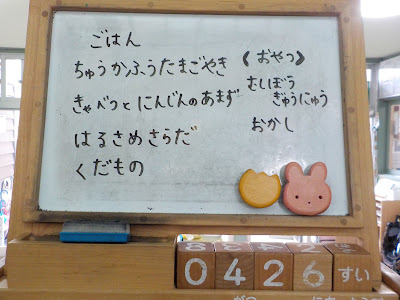 ごはん
ちゅうかふうたまごやき
きゃべつとにんじんのあまず
はるさめさらだ
くだもの
《おやつ》
むしぼう
ぎゅうにゅう
おかし
0 4 2 6 すい